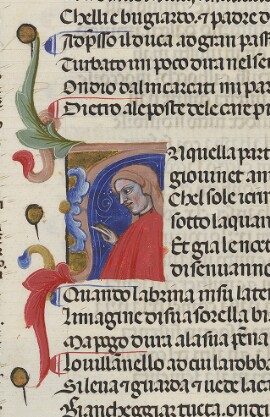 Chelli e bugiardo. ⁊ padre d
Apꝑsso il duca ad gran pass
Turbato un poco dira nel se
Ondio dalincarcati mi par
Dietro ale poste dele care pi
Naquella part
giovinet an
Chel sole icrin
sotto laquar
Et gia le nect
disenvanne
Quanto labrina insu later
Imagine disua sorella bi
Ma pogo dura alasua pēna
Lo villanello ad cui larobba
Si leva ⁊ guarda ⁊ vede laca
Biancheggiar tucta. ond